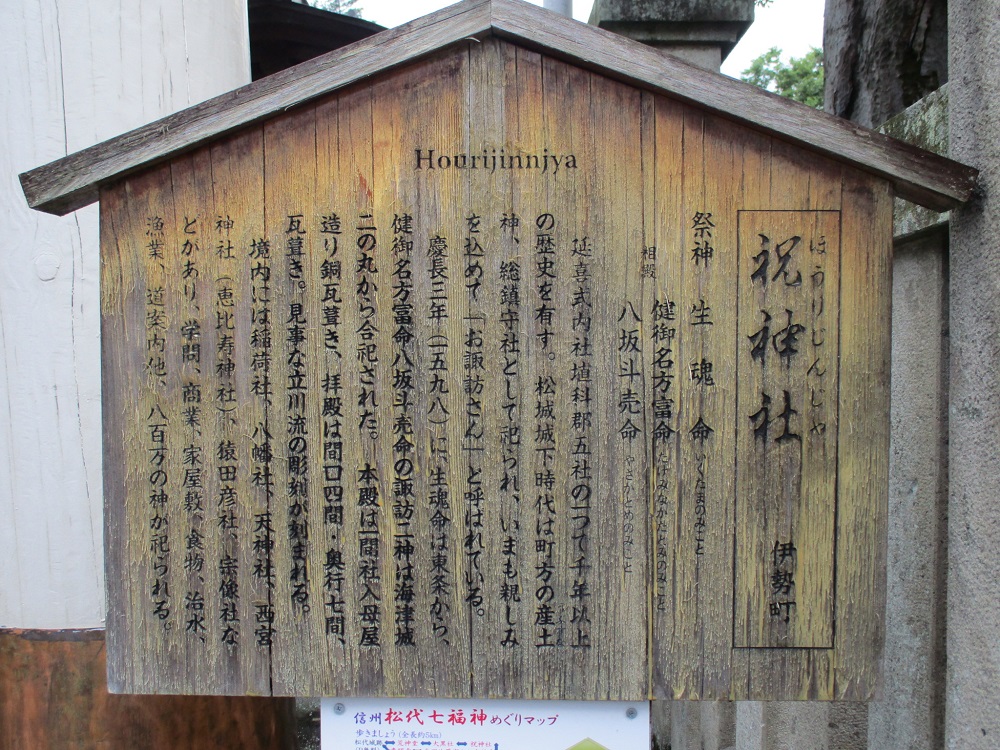 Hourijinnjya
ほうりじんじや
祝神社 伊勢町
祭神 生魂命 いくたまのみこと
健御名方富命 たけみなかたとみのみこと
相殿
八坂斗売命 やさかとめのみこと
延喜式内社埴科郡五社の一つで千年以上
の歴史を有す。松城城下時代は町方の産土
神、総鎮守社として祀られ、いまも親しみ
を込めて「お諏訪さん」と呼ばれている。
慶長三年(一五九八)に、生魂命は東条から、
健御名方冨命八坂斗売命の諏訪二神は海津城
二の丸から合祀された。本殿は一間社入母屋
造り銅瓦葺き、拝殿は間口四間・奥行七間、
瓦葺き。見事な立川流の彫刻が刻まれる。
境内には稲荷社、八幡社、天神社、西宮
神社(恵比寿神社)、猿田彦社、宗像社な
どがあり、学問、商業、家屋敷、食物、治水、
漁業、道案内他、八百万の神が祀られる。
信州松代七福神めぐりマップ
歩きましょう(全長約5km)